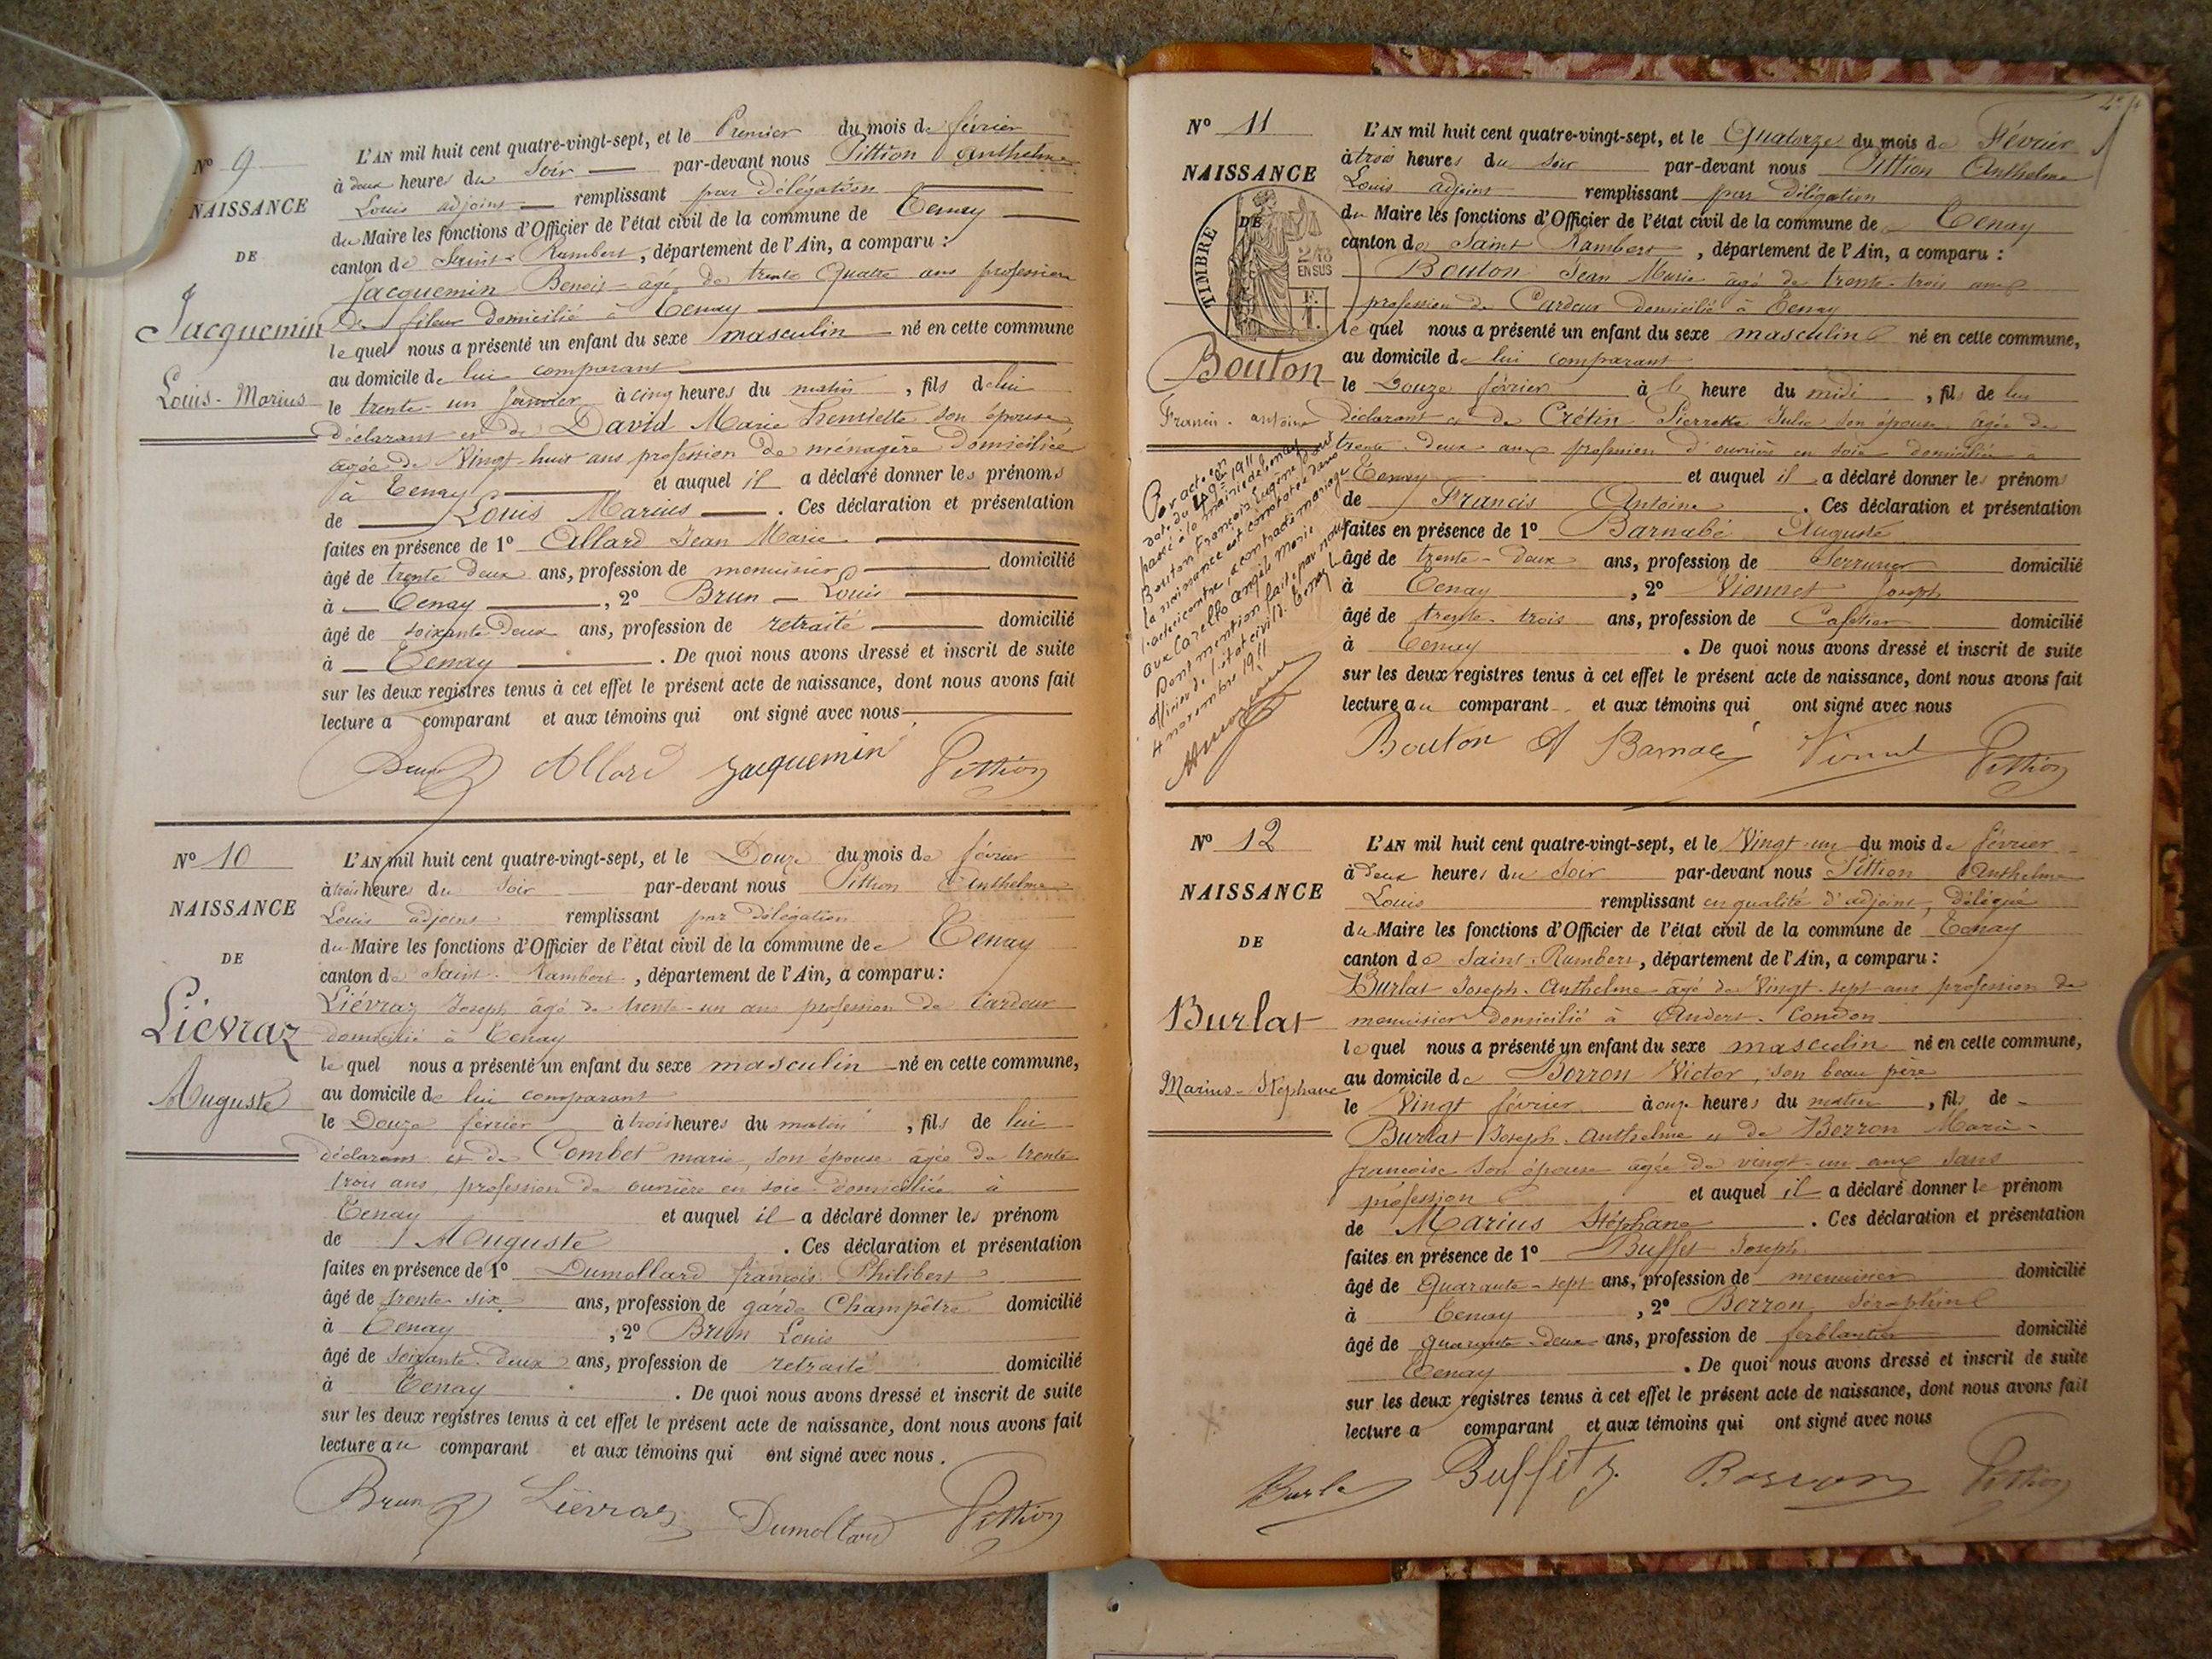 N° 9
NAISSANCE
DE
Jacquemin
Louis-Marius
L'AN mil huit cent quatre-vingt-sept, et le Premier du mois de février
à deux heures du Soir par-devant nous Pittion Anthelme
Louis adjoint remplissant par délégation
du Maire les fonctions d'Officier de l'état civil de la commune de Tenay
canton de Saint-Rambert, département de l'Ain, a comparu :
Jacquemin Benoit âgé de trente quatre ans profession
de fileur domicilié à Tenay
lequel nous a présenté un enfant du sexe masculin né en cette commune
au domicile de lui comparant
le trente-un Janvier à cinq heures du matin, fils de lui
déclarant et de David Marie Henriette son épouse
âgée de Vingt-huit ans profession de ménagère domiciliée
à Tenay et auquel il a déclaré donner les prénoms
de Louis Marius. Ces déclaration et présentation
faites en présence de 1° Allard Jean Marie
âgé de trente deux ans, profession de menuisier domicilié
à Tenay, 2° Brun Louis
âgé de soixante Deux ans, profession de retraité domicilié
à Tenay. De quoi nous avons dressé et inscrit de suite
sur les deux registres tenus à cet effet le présent acte de naissance, dont nous avons fait
lecture a comparant et aux témoins qui ont signé avec nous
Brun Allard Jacquemin Pittion
N° 10
NAISSANCE
DE
Liévraz
Auguste
L'AN mil huit cent quatre-vingt-sept, et le Douze du mois de février
à trois heures du soir par-devant nous Pittion Anthelme
Louis adjoint remplissant par délégation
du Maire les fonctions d'Officier de l'état civil de la commune de Tenay
canton de Saint-Rambert, département de l'Ain, a comparu :
Liévraz Joseph âgé de trente-un ans profession de Cardeur
domicilié à Tenay
lequel nous a présenté un enfant du sexe masculin né en cette commune,
au domicile de lui comparant
le Douze février à trois heures du matin, fils de lui
déclarant et de Combet marie, son épouse âgée de trente
trois ans, profession de ouvrière en soie domiciliée à
Tenay et auquel il a déclaré donner les prénom
de Auguste. Ces déclaration et présentation
faites en présence de 1° Dumollard françois Philibert
âgé de trente six ans, profession de garde Champêtre domicilié
à Tenay, 2° Brun Louis
âgé de soixante-deux ans, profession de retraité domicilié
à Tenay. De quoi nous avons dressé et inscrit de suite
sur les deux registres tenus à cet effet le présent acte de naissance, dont nous avons fait
lecture au comparant et aux témoins qui ont signé avec nous.
Brun Liévraz Dumollard Pittion
N° 11
NAISSANCE
DE
TIMBRE
2/10
EN SUS
Bouton
Francis-antoine
Par acte en
date du 4 9bre 1911
passé à la mairie de
Bouton françois Eugène dont
la naissance est constatée dans
l'acte ci contre, a contracté mariage
avec Carello angèle Marie
Dont mention faite par nous
officier de l'état civil d. Tenay l
4 novembre 1911
L'AN mil huit cent quatre-vingt-sept, et le Quatorze du mois de Février
à trois heures du soir par-devant nous Pittion Anthelme
Louis adjoint remplissant par délégation
du Maire les fonctions d'Officier de l'état civil de la commune de Tenay
canton de Saint Rambert, département de l'Ain, a comparu :
Bouton Jean Marie âgé de trente-trois ans
profession de Cardeur domicilié à Tenay
lequel nous a présenté un enfant du sexe masculin né en cette commune,
au domicile de lui comparant
le Douze février à heure du midi, fils de lui
déclarant et de Crétin Pierrette Julie son épouse âgée de
trente-deux ans profession d'ouvrière en soie domiciliée à
Tenay et auquel il a déclaré donner les prénoms
de Francis Antoine. Ces déclaration et présentation
faites en présence de 1° Barnabé Auguste
âgé de trente-deux ans, profession de Serrurier domicilié
à Tenay, 2° Vionnet Joseph
âgé de trente-trois ans, profession de Cafetier domicilié
à Tenay. De quoi nous avons dressé et inscrit de suite
sur les deux registres tenus à cet effet le présent acte de naissance, dont nous avons fait
lecture au comparant et aux témoins qui ont signé avec nous
Bouton A Barnabé Vionnet Pittion
N° 12
NAISSANCE
DE
Burlat
Marius-Stéphane
L'AN mil huit cent quatre-vingt-sept, et le Vingt-un du mois de février
à deux heures du Soir par-devant nous Pittion Anthelme
Louis remplissant en qualité d'adjoint, délégué
du Maire les fonctions d'Officier de l'état civil de la commune de Tenay
canton de Saint-Rambert, département de l'Ain, a comparu :
Burlat Joseph-Anthelme âgé de Vingt-sept ans profession de
menuisier domicilié à Andert-Condon
lequel nous a présenté un enfant du sexe masculin né en cette commune,
au domicile de Borron Victor, son beau père
le Vingt février à onze heures du matin, fils de
Burlat Joseph-Anthelme et de Borron Marie
françoise son épouse âgée de vingt-un ans sans
profession et auquel il a déclaré donner le prénom
de Marius Stéphane. Ces déclaration et présentation
faites en présence de 1° Buffet Joseph
âgé de Quarante-sept ans, profession de menuisier domicilié
à Tenay, 2° Borron Séraphin
âgé de quarante-deux ans, profession de ferblantier domicilié
Tenay. De quoi nous avons dressé et inscrit de suite
sur les deux registres tenus à cet effet le présent acte de naissance, dont nous avons fait
lecture a comparant et aux témoins qui ont signé avec nous
Burla Buffet J. Borron Pittion